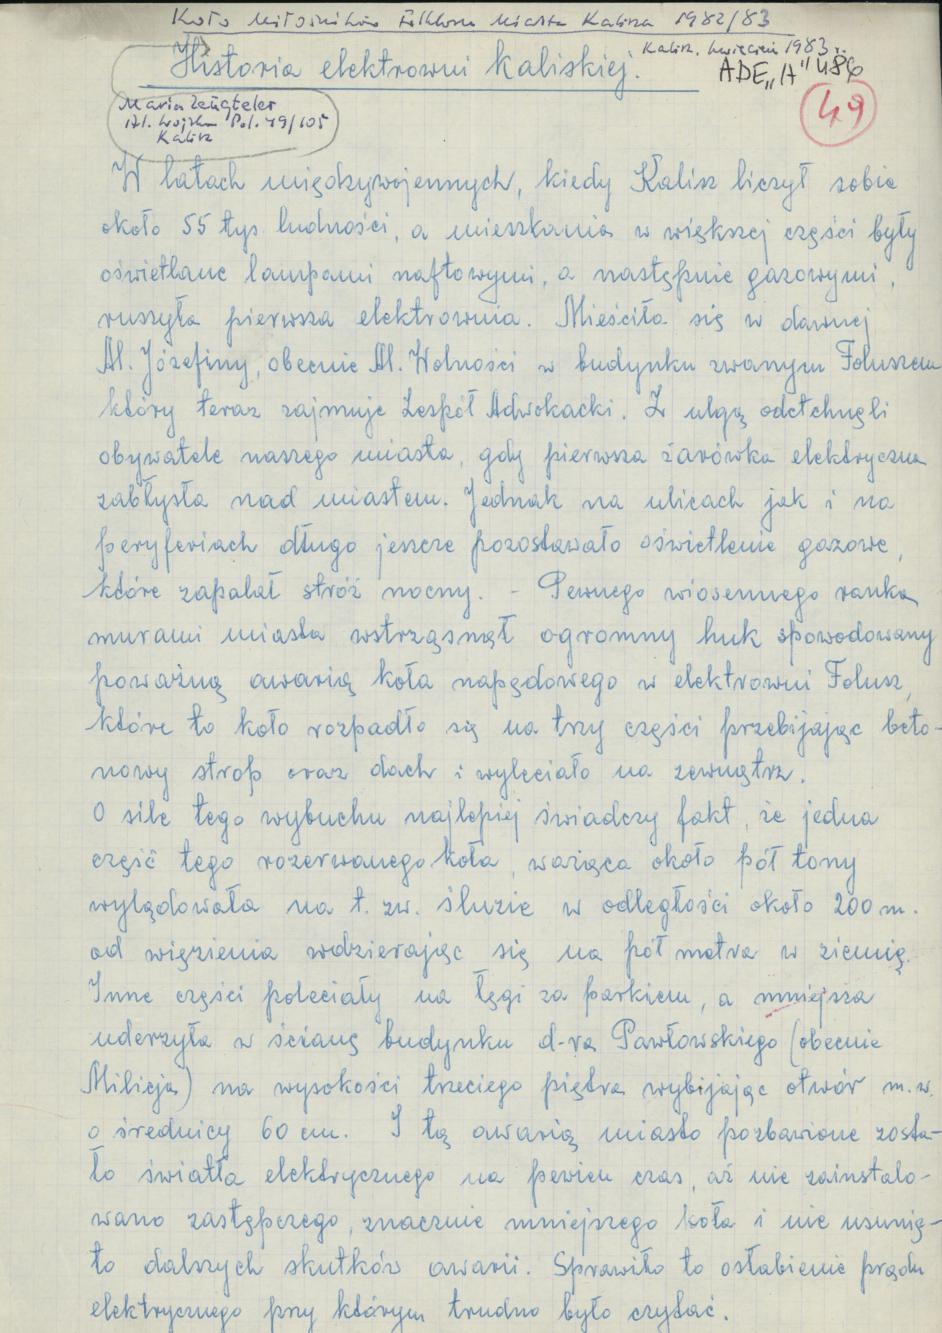 Koło Miłośników Folkloru Miasta Kalisza 1982/83
Kalisz, kwiecień 1983 r.
Historia elektrowni kaliskiej.
ADE "A" 486
49
Maria
Al. Wojska Pol. 79/105
Kalisz
W latach międzywojennych, kiedy Kalisz liczył sobie
około 55 tys. ludności, a mieszkania w większej części były
oświetlane lampami naftowymi, a następnie gazowymi,
ruszyła pierwsza elektrownia. Mieściła się w dawnej
Al. Józefiny, obecnie Al. Wolności w budynku zwanym Foluszem
który teraz zajmuje Zespół Adwokacki. Z ulgą odetchnęli
obywatele naszego miasta, gdy pierwsza żarówka elektryczna
zabłysła nad miastem. Jednak na ulicach jak i na
peryferiach długo jeszcze pozostawało oświetlenie gazowe,
które zapalał stróż nocny. - Pewnego wiosennego ranka
murami miasta wstrząsnął ogromny huk spowodowany
poważną awarią koła napędowego w elektrowni Folusz,
które to koło rozpadło się na trzy części przebijając beto-
nowy strop oraz dach i wyleciało na zewnątrz.
O sile tego wybuchu najlepiej świadczy fakt, że jedna
część tego rozerwanego koła, ważąca około pół tony
wylądowała na t. zw. śluzie w odległości około 200 m.
od więzienia wdzierając się na pół metra w ziemię.
Inne części poleciały na łęgi za parkiem, a mniejsza
uderzyła w ścianę budynku d-ra Pawłowskiego (obecnie
Milicja) na wysokości trzeciego piętra wybijając otwór m. w.
o średnicy 60 cm. I tą awarią miasto pozbawione zosta-
ło światła elektrycznego na pewien czas, aż nie zainstalo-
wano zastępczego, znacznie mniejszego koła i nie usunię-
to dalszych skutków awarii. Sprawiło to osłabienie prądu
elektrycznego przy którym trudno było czytać.